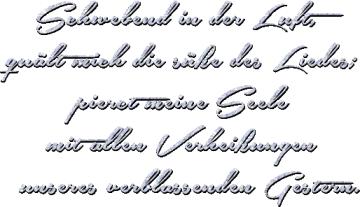 Schwebend in der Luft,
quält mich die süße des Liedes;
pierct meine Seele
mit allen Verheißungen
unseres verblassenden Gestern.